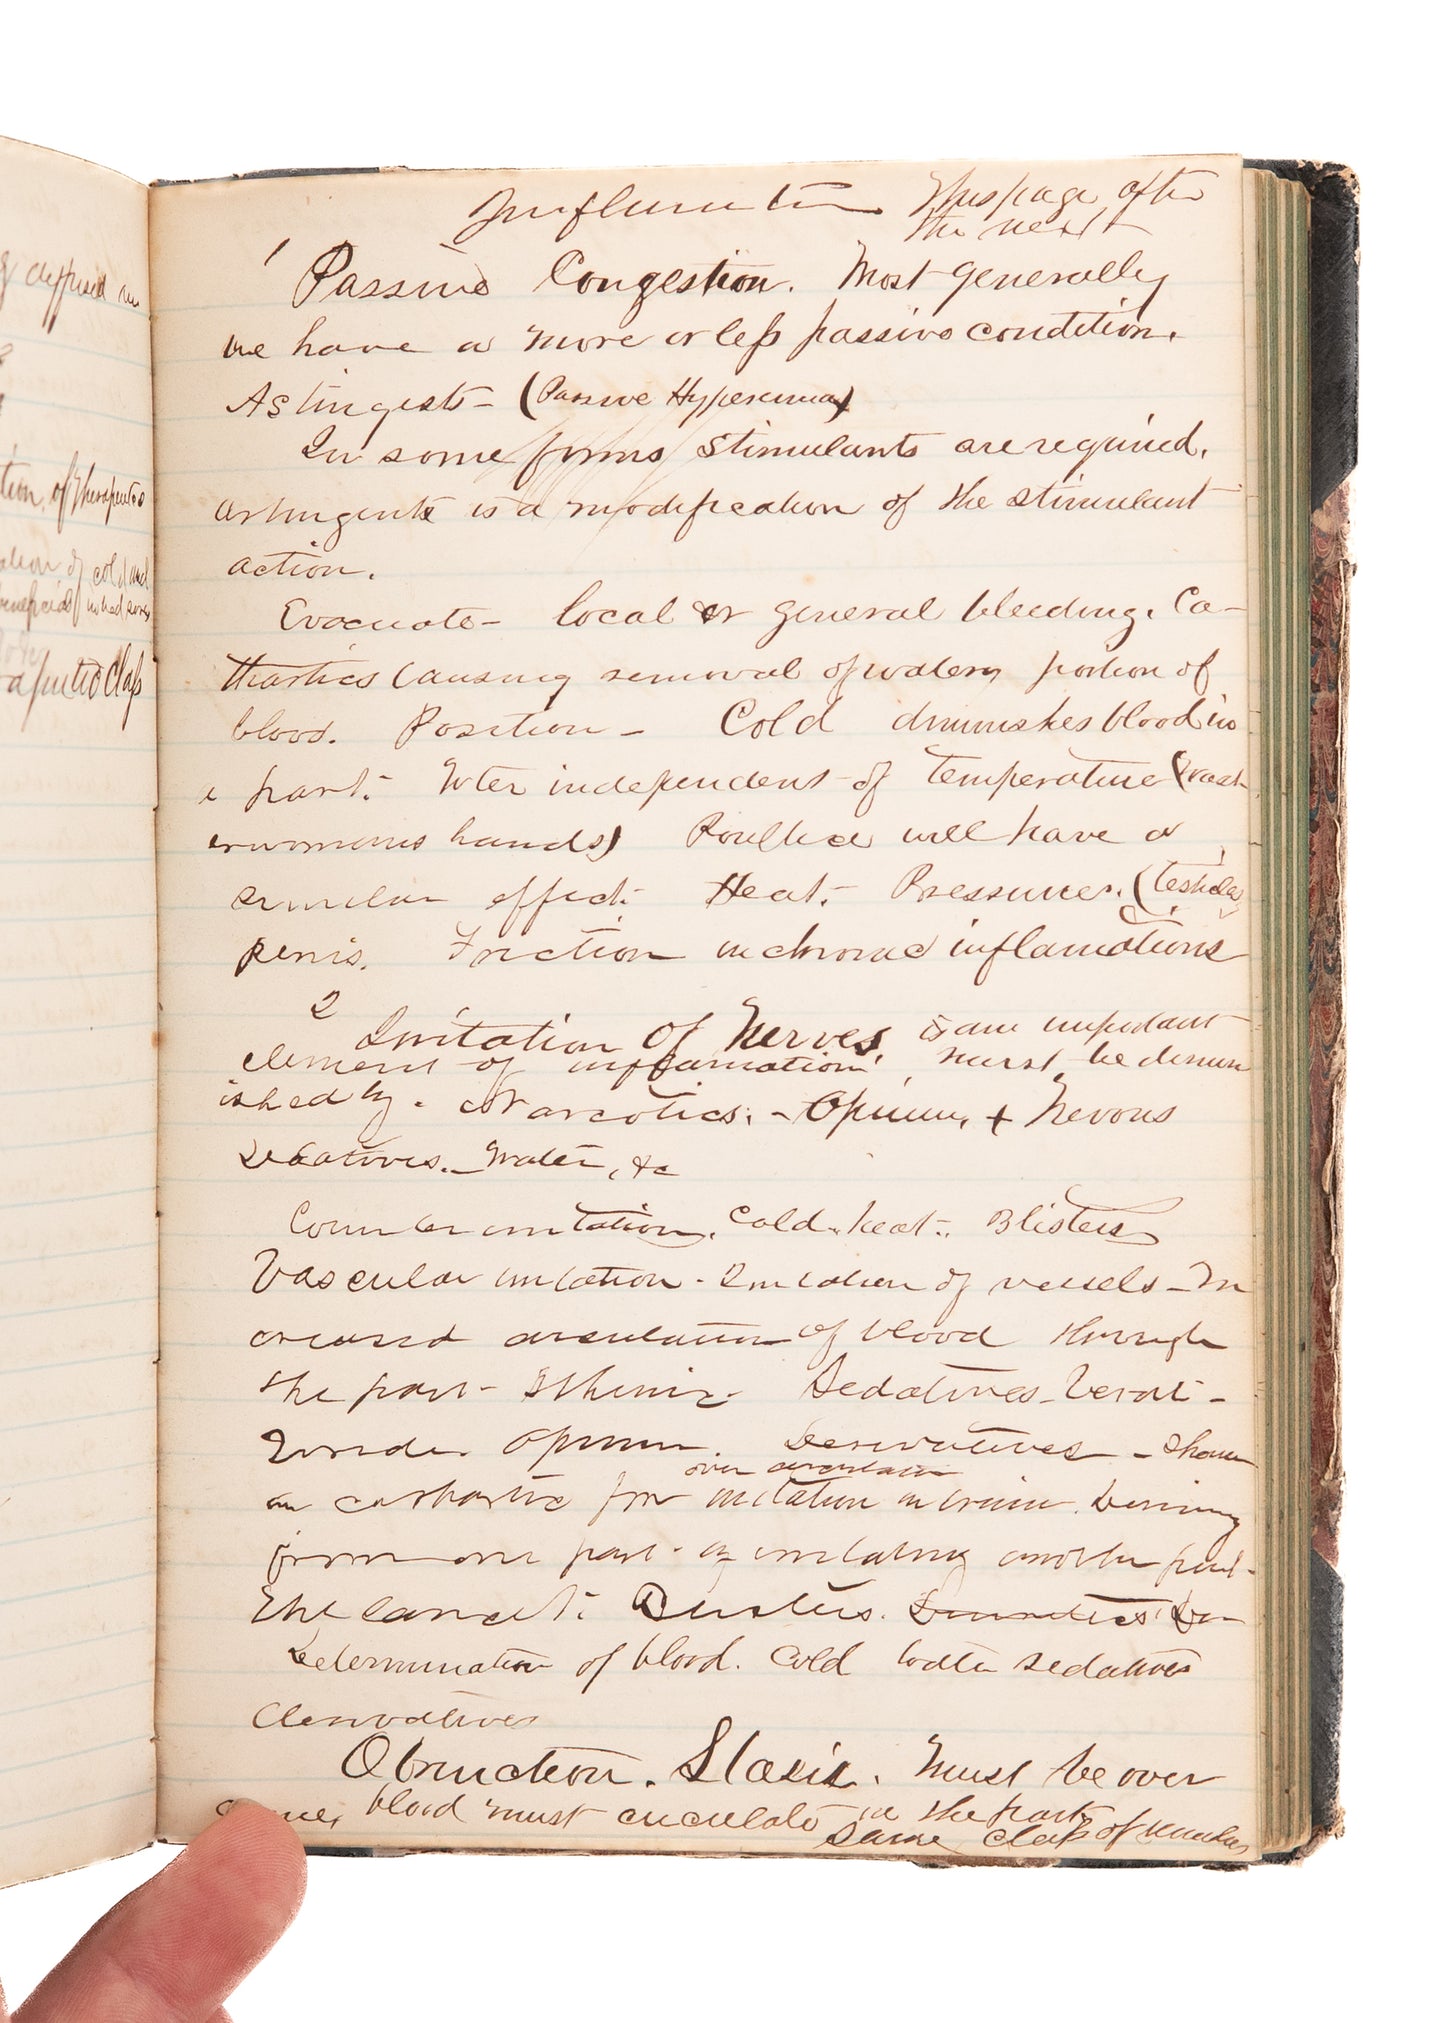 Inflamation This page after
the next
1 Passive Congestion. Most generally
we have a more or less passive condition.
Astingests - (Passive Hyperemia)
In some forms stimulants are required.
astingents is a modification of the stimulant
action.
Evacuate - local or general bleeding. Ca-
thartics causing removal of watery portion of
blood. Position - Cold diminishes blood in
a part. Water independent of temperature (wash
erwomans hands) Poultice will have a
similar effect. Heat. Pressure. (testicles
penis. Friction in chronic inflamations
2 Irritation of Nerves, is an important
element of inflamation, must be dimin
ished by. Narcotics. - Opium, + Nevous
Sedatives. - Water, &c
Counter irritation, Cold. heat. Blisters
Vascular irritation - Irritation of vessels - In
creased circulation of blood through
the part - Sthenic - Sedatives - Verat-
Opium. Derivatives -
over circulation
a cathartic for irritation in brain. Deriving
from one part by irritating another part.
The lancet.
Determination of blood. Cold water sedatives
derivatives
Obruction. Stasis. Must be over
come, blood must circulate in the part,
same class of
of therapeutics
of cold and
class